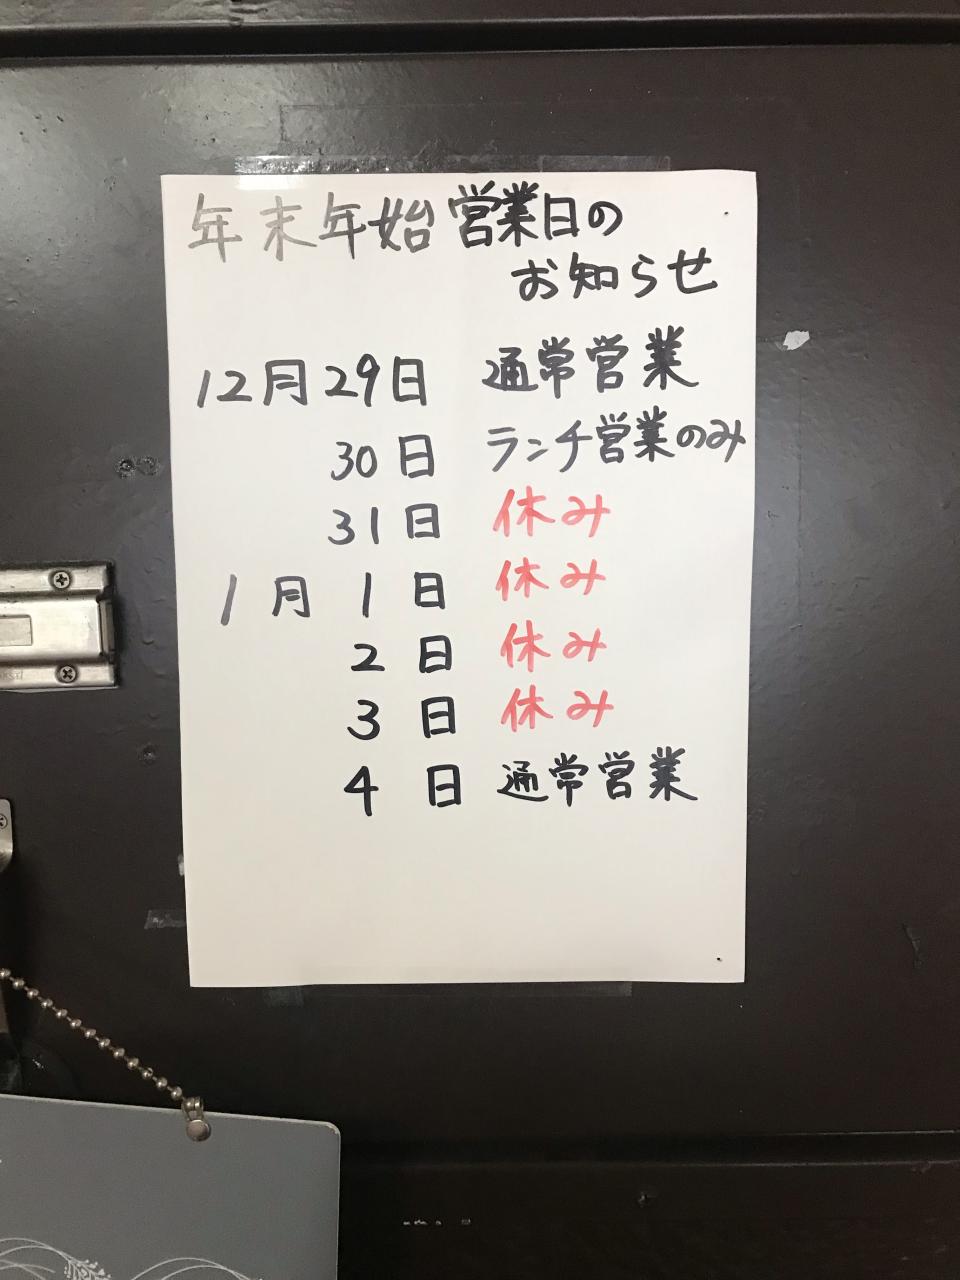 年末年始営業日の
お知らせ
12月29日 通常営業
30日 ランチ営業のみ
31日 休み
1月1日 休み
2日 休み
3日 休み
4日 通常営業